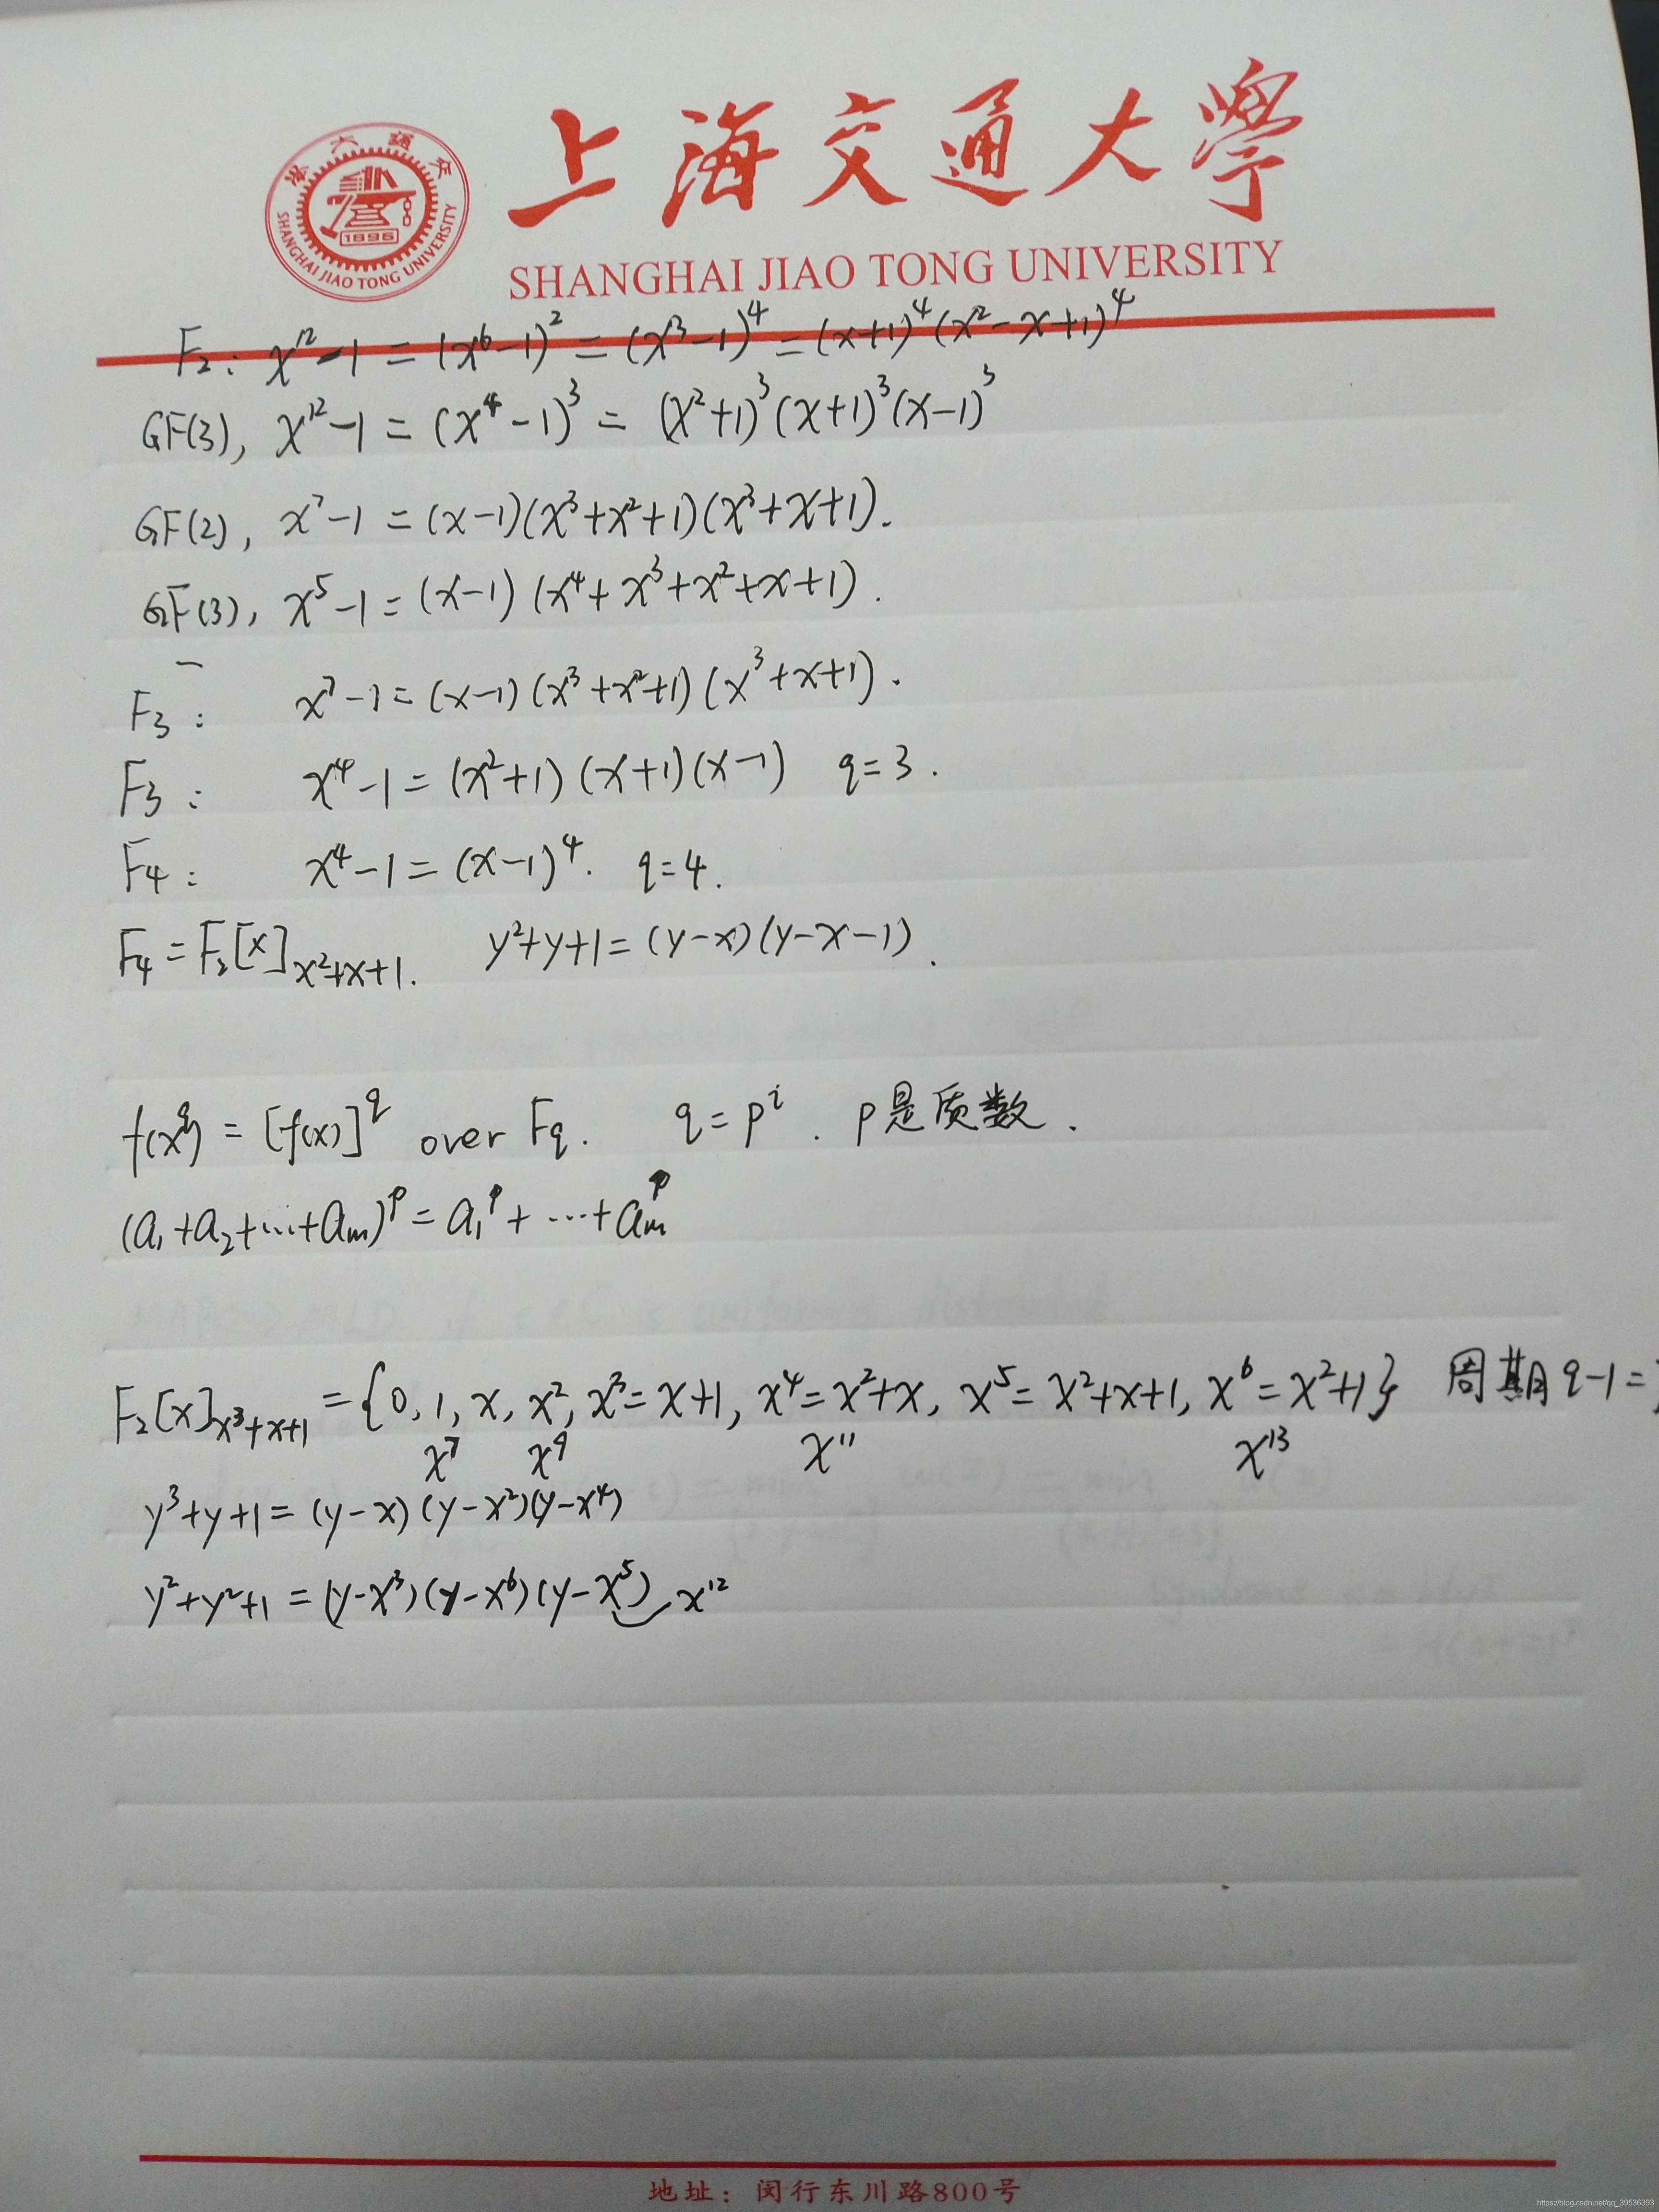 上海交通大學
SHANGHAI JIAO TONG UNIVERSITY
1896
SHANGHAI JIAO TONG UNIVERSITY
F₂: x¹²-1 = (x⁶-1)² = (x³-1)⁴ = (x+1)⁴(x²-x+1)⁴
GF(3), x¹²-1 = (x⁴-1)³ = (x²+1)³(x+1)³(x-1)³
GF(2), x⁷-1 = (x-1)(x³+x²+1)(x³+x+1).
GF(3), x⁵-1 = (x-1)(x⁴+x³+x²+x+1).
F₃: x⁷-1 = (x-1)(x³+x²+1)(x³+x+1).
F₃: x⁴-1 = (x²+1)(x+1)(x-1) q=3.
F₄: x⁴-1 = (x-1)⁴. q=4.
F₄ = F₂[x]_{x²+x+1}. y²+y+1 = (y-x)(y-x-1).
f(x^q) = [f(x)]^q over F_q. q=p^i. p是质数.
(a₁+a₂+...+a_m)^p = a₁^p + ...+ a_m^p
F₂[x]_{x³+x+1} = {0, 1, x, x², x³=x+1, x⁴=x²+x, x⁵=x²+x+1, x⁶=x²+1} 周期 q-1=
x⁷ x⁹ x¹¹ x¹³
y³+y+1 = (y-x)(y-x²)(y-x⁴)
y²+y²+1 = (y-x³)(y-x⁶)(y-x⁵) x¹²
地址：闵行东川路800号
https://blog.csdn.net/qq_39536393